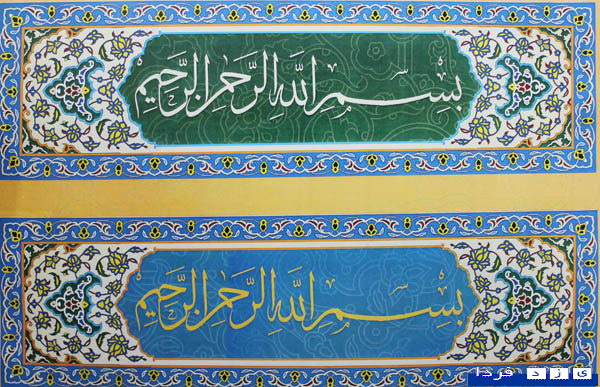 بسم الله الرحمن الرحيم
بسم الله الرحمن الرحيم
ی ز د فردا